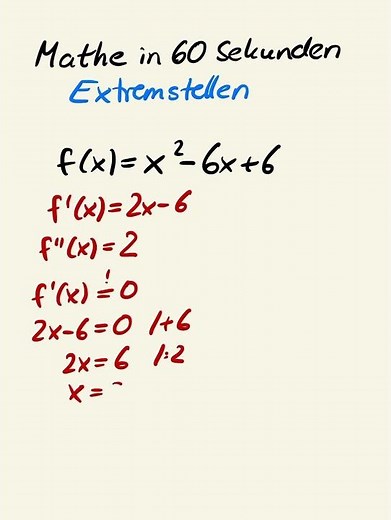 Mathe in 60 Sekunden
Extremstellen
f(x)=x²-6x+6
f'(x)=2x-6
f"(x)=2
f'(x)=!0
2x-6=0 /+6
2x=6 /:2
x=